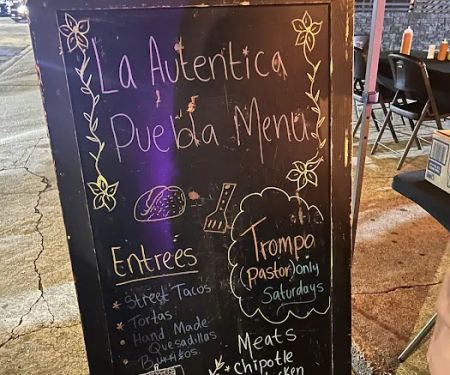 La Autentica
Puebla Menu
Entrees
Street Tacos
Tortas
Hand Made
Quesadillas
Burritos
Trompo
(pastor) only
Saturdays
Meats
Chipotle